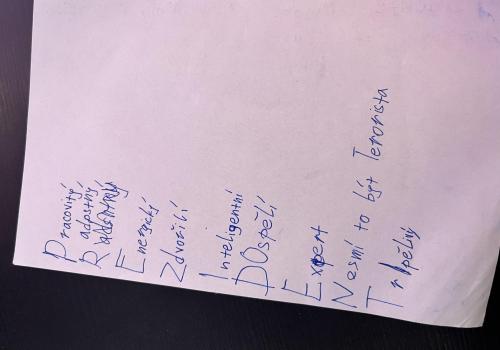 Pracovitý
Radostný
Energický
Zdvořilí
Inteligentní
DOspělí
Expert
Nesmí to být Terorista
Trpělivý